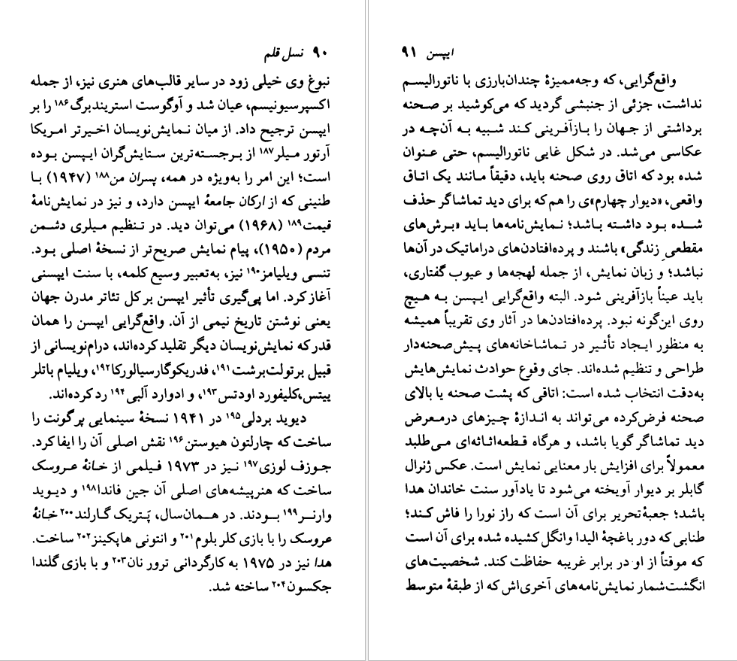 ۹۰ نسل قلم
نبوغ وی خیلی زود در سایر قالب‌های هنری نیز، از جمله
اکسپرسیونیسم، عیان شد و آوگوست استریندبرگ۱۸۶ را بر
ایبسن ترجیح داد. از میان نمایش‌نویسان اخیرتر امریکا
آرتور میلر۱۸۷ از برجسته‌ترین ستایش‌گران ایبسن بوده
است؛ این امر را به‌ویژه در همه، پسران من۱۸۸ (۱۹۴۷) با
طنینی که از ارکان جامعهٔ ایبسن دارد، و نیز در نمایش‌نامهٔ
قیمت۱۸۹ (۱۹۶۸) می‌توان دید. در تنظیم میلری دشمن
مردم (۱۹۵۰)، پیام نمایش صریح‌تر از نسخهٔ اصلی بود.
تنسی ویلیامز۱۹۰ نیز، به‌تعبیر وسیع کلمه، با سنت ایبسنی
آغاز کرد. اما پی‌گیری تأثیر ایبسن بر کل تئاتر مدرن جهان
یعنی نوشتن تاریخ نیمی از آن. واقع‌گرایی ایبسن را همان
قدر که نمایش‌نویسان دیگر تقلید کرده‌اند، درام‌نویسانی از
قبیل برتولت‌برشت۱۹۱، فدریکوگارسیالورکا۱۹۲، ویلیام باتلر
ییتس،کلیفورد اودتس۱۹۳، و ادوارد آلبی۱۹۴ رد کرده‌اند.
دیوید بردلی۱۹۵ در ۱۹۴۱ نسخهٔ سینمایی پرگونت را
ساخت که چارلتون هیوستن۱۹۶ نقش اصلی آن را ایفا کرد.
جوزف لوزی۱۹۷ نیز در ۱۹۷۳ فیلمی از خانهٔ عروسک
ساخت که هنرپیشه‌های اصلی آن جین فاندا۱۹۸ و دیوید
وارنر۱۹۹ بودند. در همان‌سال، پَتریک گارلند۲۰۰ خانهٔ
عروسک را با بازی کلر بلوم۲۰۱ و انتونی هاپکینز۲۰۲ ساخت.
هدا نیز در ۱۹۷۵ به کارگردانی ترور نان۲۰۳ و با بازی گلندا
جکسون۲۰۴ ساخته شد.
ایبسن ۹۱
واقع‌گرایی، که وجه‌ممیزهٔ چندان‌بارزی با ناتورالیسم
نداشت، جزئی از جنبشی گردید که می‌کوشید بر صحنه
برداشتی از جهان را بازآفرینی کند شبیه به آن‌چه در
عکاسی می‌شد. در شکل غایی ناتورالیسم، حتی عنوان
شده بود که اتاق روی صحنه باید، دقیقاً مانند یک اتاق
واقعی، «دیوار چهارم»ی را هم که برای دید تماشاگر حذف
شده بود داشته باشد؛ نمایش‌نامه‌ها باید «برش‌های
مقطعی زندگی» باشند و پرده‌افتادن‌های دراماتیک در آن‌ها
نباشد؛ و زبان نمایش، از جمله لهجه‌ها و عیوب گفتاری،
باید عیناً بازآفرینی شود. البته واقع‌گرایی ایبسن به هیچ
روی این‌گونه نبود. پرده‌افتادن‌ها در آثار وی تقریباً همیشه
به منظور ایجاد تأثیر در تماشاخانه‌های پیش‌صحنه‌دار
طراحی و تنظیم شده‌اند. جای وقوع حوادث نمایش‌هایش
به‌دقت انتخاب شده است: اتاقی که پشت صحنه یا بالای
صحنه فرض‌کرده می‌تواند به اندازهٔ چیزهای درمعرض
دید تماشاگر گویا باشد، و هرگاه قطعه‌اثاثه‌ای می‌طلبد
معمولاً برای افزایش بار معنایی نمایش است. عکس ژنرال
گابلر بر دیوار آویخته می‌شود تا یادآور سنت خاندان هدا
باشد؛ جعبهٔ‌تحریر برای آن است که راز نورا را فاش کند؛
طنابی که دور باغچهٔ الیدا وانگل کشیده شده برای آن است
که موقتاً از او در برابر غریبه حفاظت کند. شخصیت‌های
انگشت‌شمار نمایش‌نامه‌های آخری‌اش که از طبقهٔ متوسط